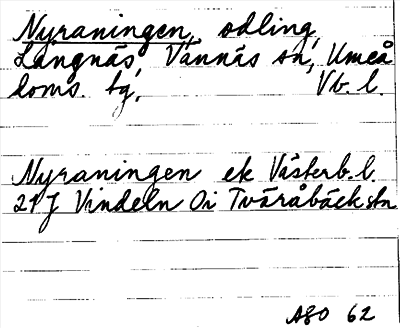 Nyraningen, odling,
Långnäs, Vännäs sn, Umeå
doms. tg, Vb. l.
Nyraningen ek Västerb. l.
21J Vindeln Oi Tväråbäck stn
ASO 62